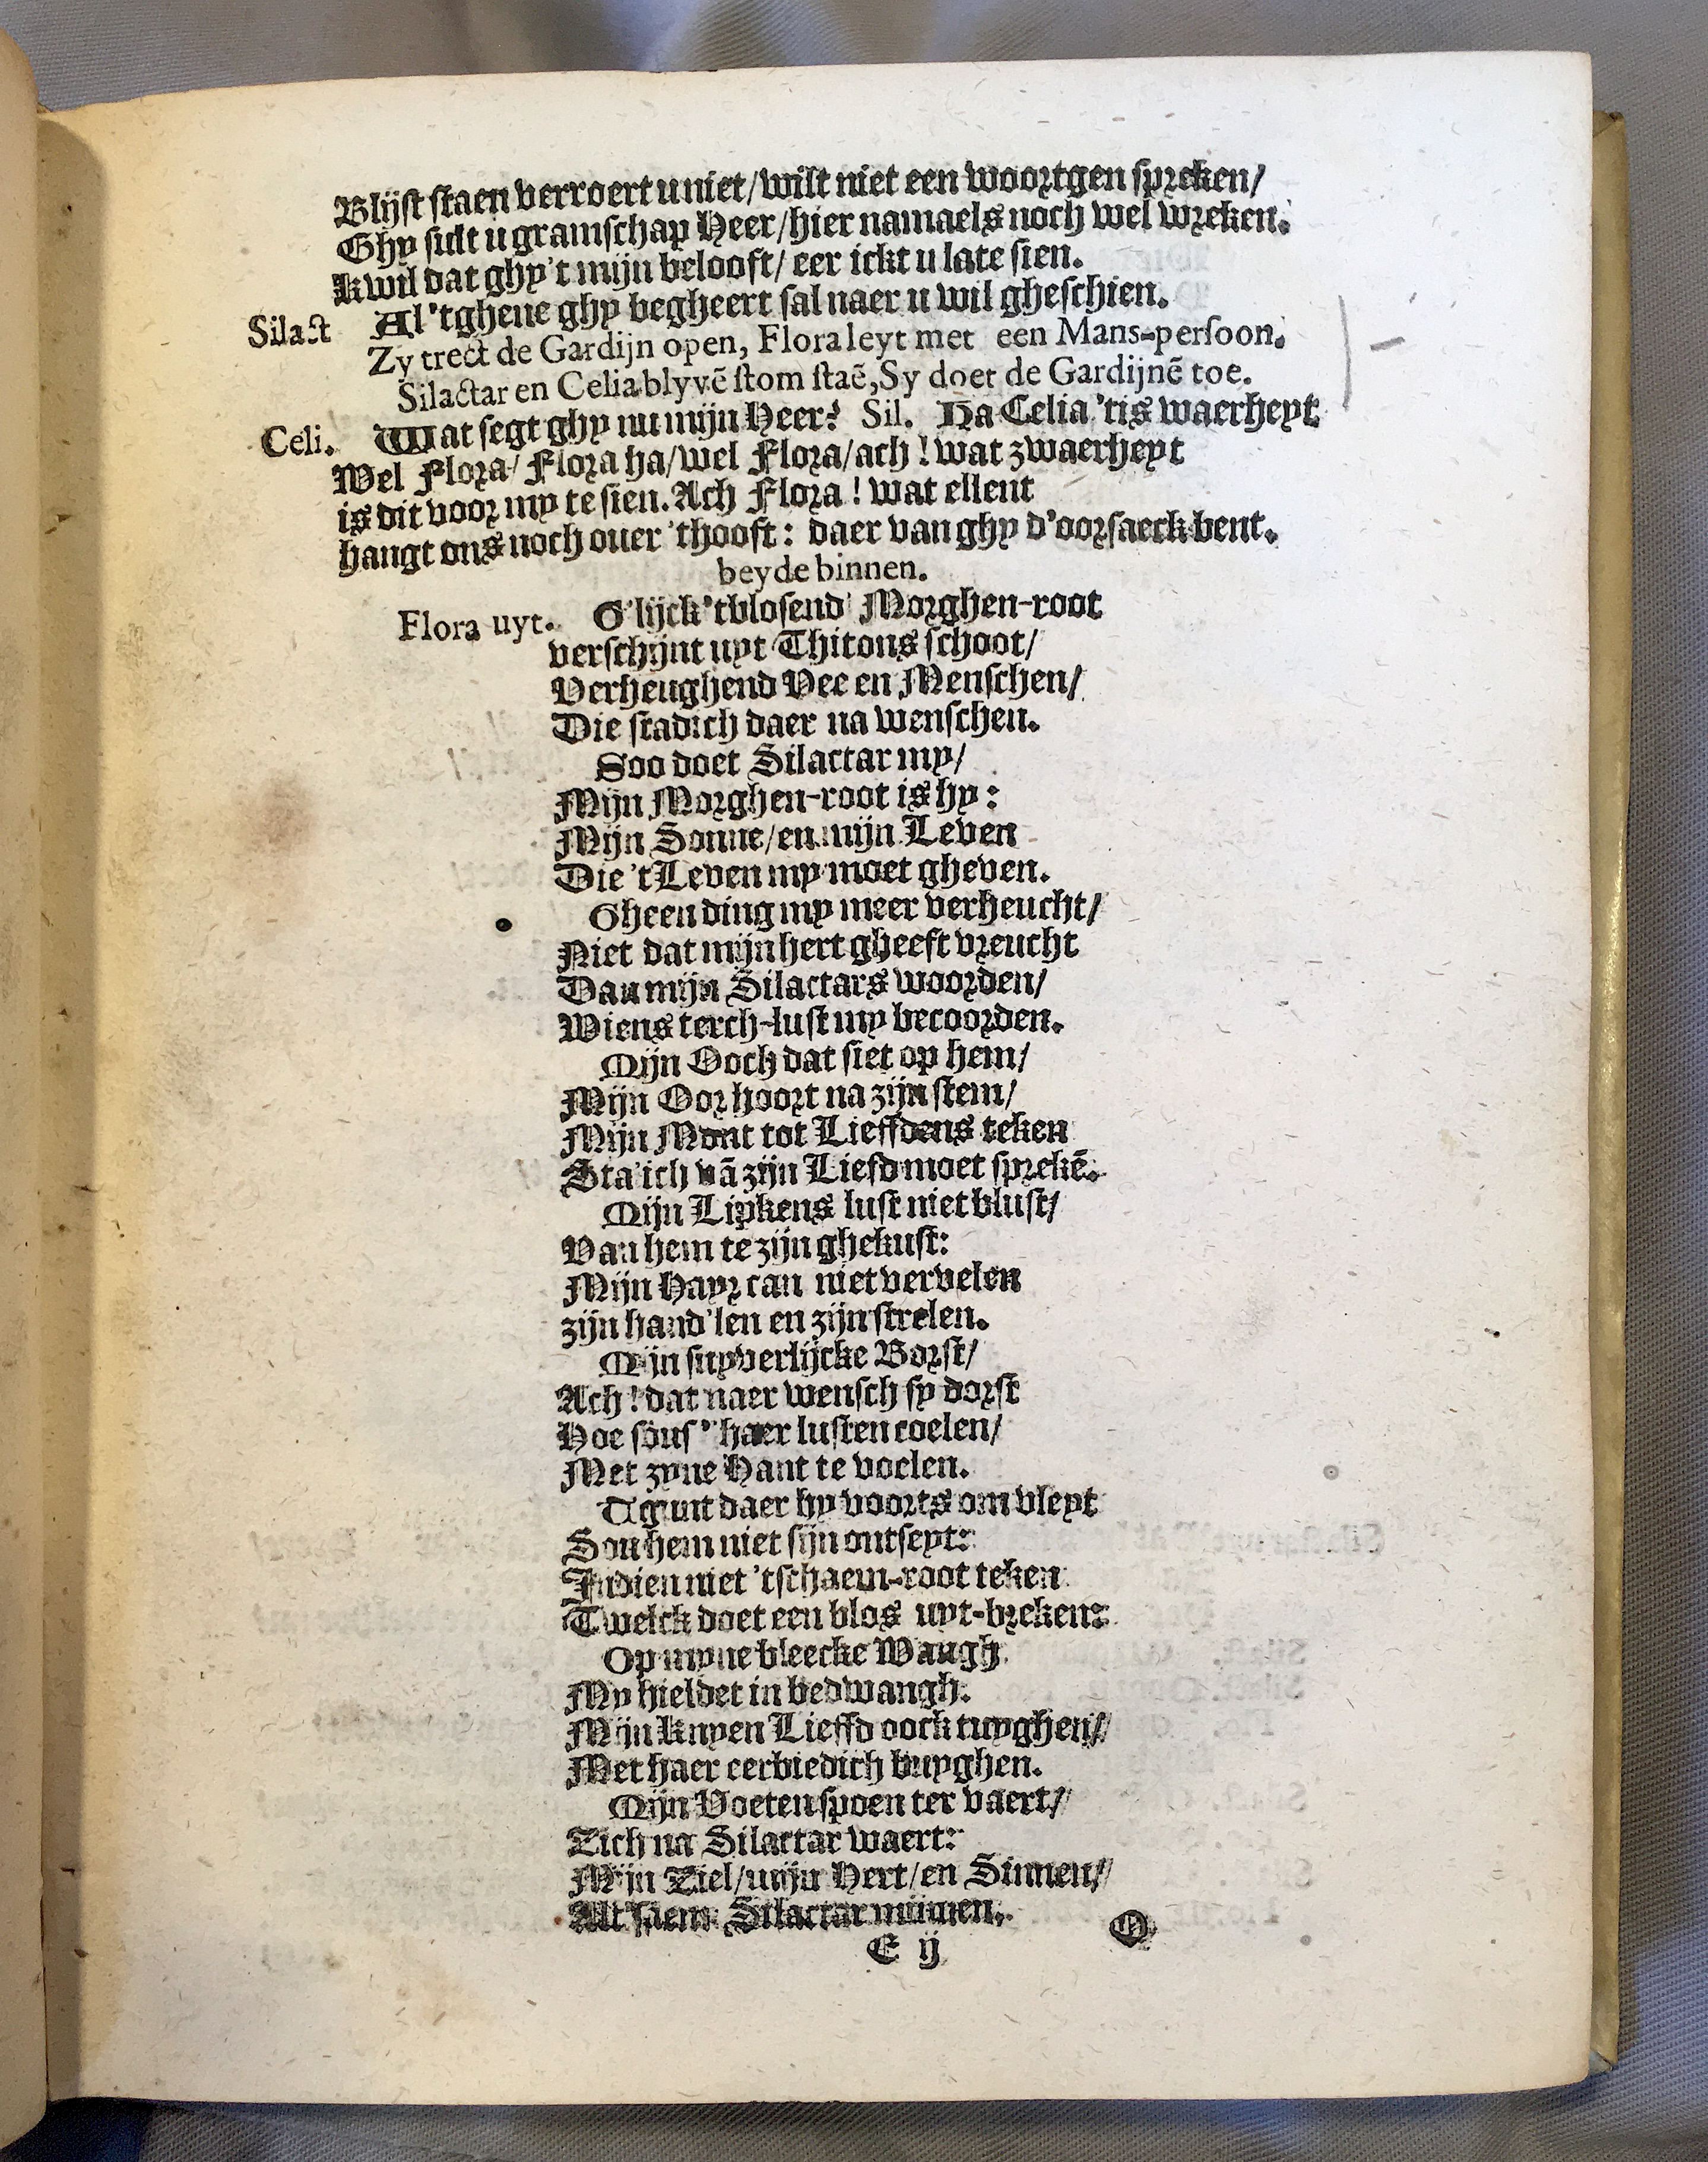 Blijft staen verroert u niet/wilt niet een woortgen spreken/
Ghy sult u gramschap Heer/hier namaels noch wel wreken.
K wil dat ghy't mijn belooft/ eer ickt u late sien.
Silact Al 'tghene ghy begheert sal naer u wil gheschien.
Zy trect de Gardijn open, Flora leyt met een Mans-persoon.
Silactar en Celia blyvē stom staē, Sy doet de Gardijnē toe.
Celi. Wat segt ghy nu mijn Heer? Sil. Ha Celia 'tis waerheyt
Wel Flora/ Flora ha/wel Flora/ach ! wat zwaerheyt
is dit voor my te sien. Ach Flora ! wat ellent
hangt ons noch over 'thooft : daer van ghy d'oorsaeck bent.
beyde binnen.
Flora uyt. G'lijck 'tblosend' Morghen-root
verschijnt uyt Thitons schoot/
Verheughend Vee en Menschen/
Die stadich daer na wenschen.
Soo doet Silactar my/
Mijn Morghen-root is hy :
Mijn Sonne/en mijn Leven
Die 't Leven my moet gheven.
Gheen ding my meer verheucht/
Niet dat mijn hert gheeft vreucht
Dan mijn Silactars woorden/
Wiens terch-lust my becoorden.
Mijn Ooch dat siet op hem/
Mijn Oor hoort na zijn stem/
Mijn Mont tot Lieffdens teken
Sta'ich vā zijn Liefd moet sprekē.
Mijn Lipkens lust niet blust/
Van hem te zijn ghekust:
Mijn Hayr can niet vervelen
zijn hand'len en zijn strelen.
Mijn suyverlijcke Borst/
Ach ! dat naer wensch sy dorst
Hoe sous' haer lusten coelen/
Met zyne Hant te voelen.
Tgunt daer hy voorts om vleyt
Sou hem niet sijn ontseyt:
Indien niet 'tschaem-root teken
Twelck doet een blos uyt-breken:
Op myne bleecke Wangh
My hieldet in bedwangh.
Mijn Knyen Lieffd oock tuyghen/
Met haer eerbiedich buyghen.
Mijn Voeten spoen ter vaert/
Tich na Silactar waert:
Mijn Ziel/mijn Hert/en Sinnen/
Al t'saem Silactar minnen.
E ij O